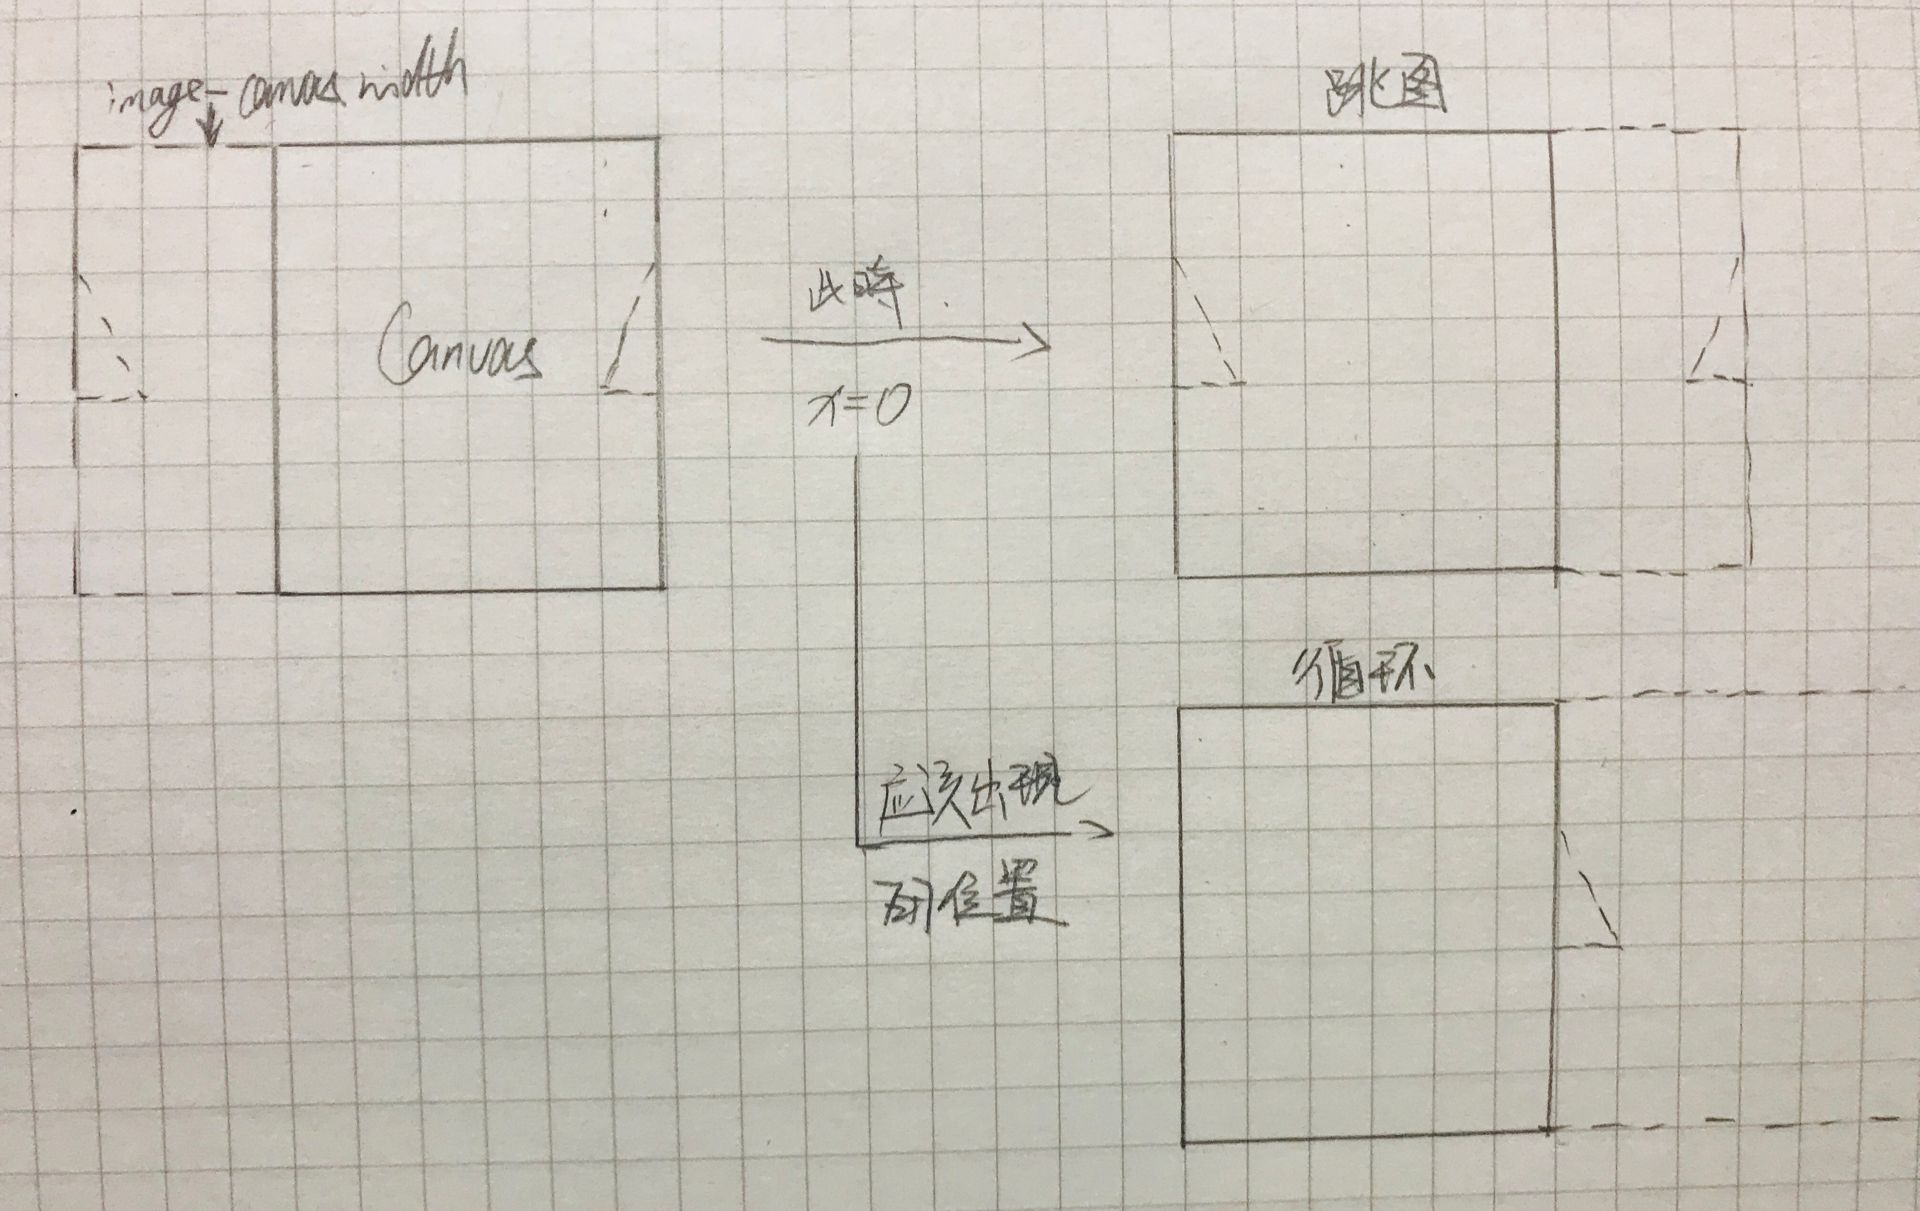 image-canvas width
Canvas
此時
x=0
跳图
循环
应该出现
的位置